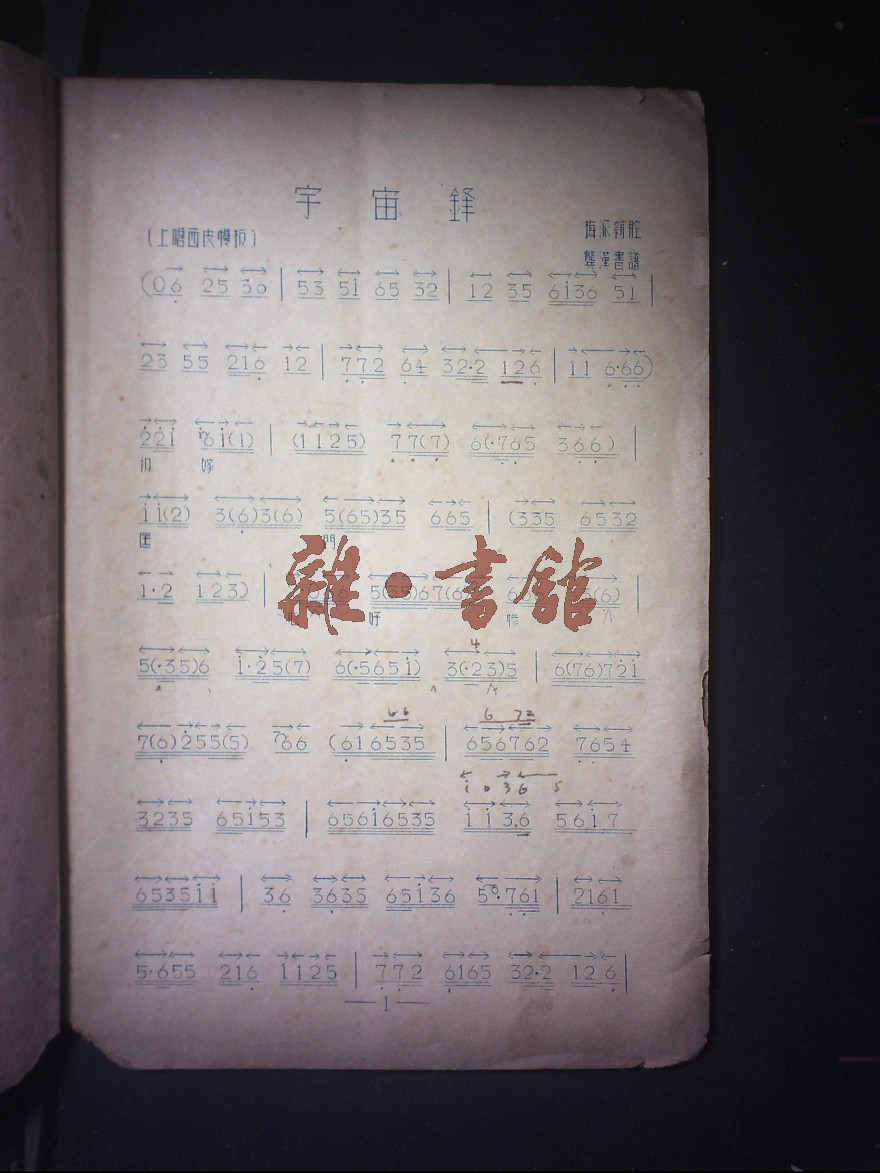 宇宙鋒
(上唱西皮慢板)
梅派新腔
龔漢書譜
(06 25 36 | 53 5i 65 32 | 12 35 6i36 51 |
23 55 216 12 | 772 64 32·2 126 | 11 6·66)
22i 6i(1) | (1125) 77(7) 6(·765 366) |
ii(2) 3(6)3(6) 5(65)35 665 | (335 6532
門
1·2 123) | 5(35)67(6
好
雜·書館
4
5(·35)6 i·25(7) 6(·565i) 3(·23)5 | 6(76)72i
66 6 72
7(6)255(5) 766 (616535 | 656762 7654
i 0 3 6 5
3235 65i53 | 656i6535 ii3.6 56i7
6535ii | 36 3635 65i36 5·76i | 2161
5·655 216 1125 | 772 6165 32·2 126 |
—1—